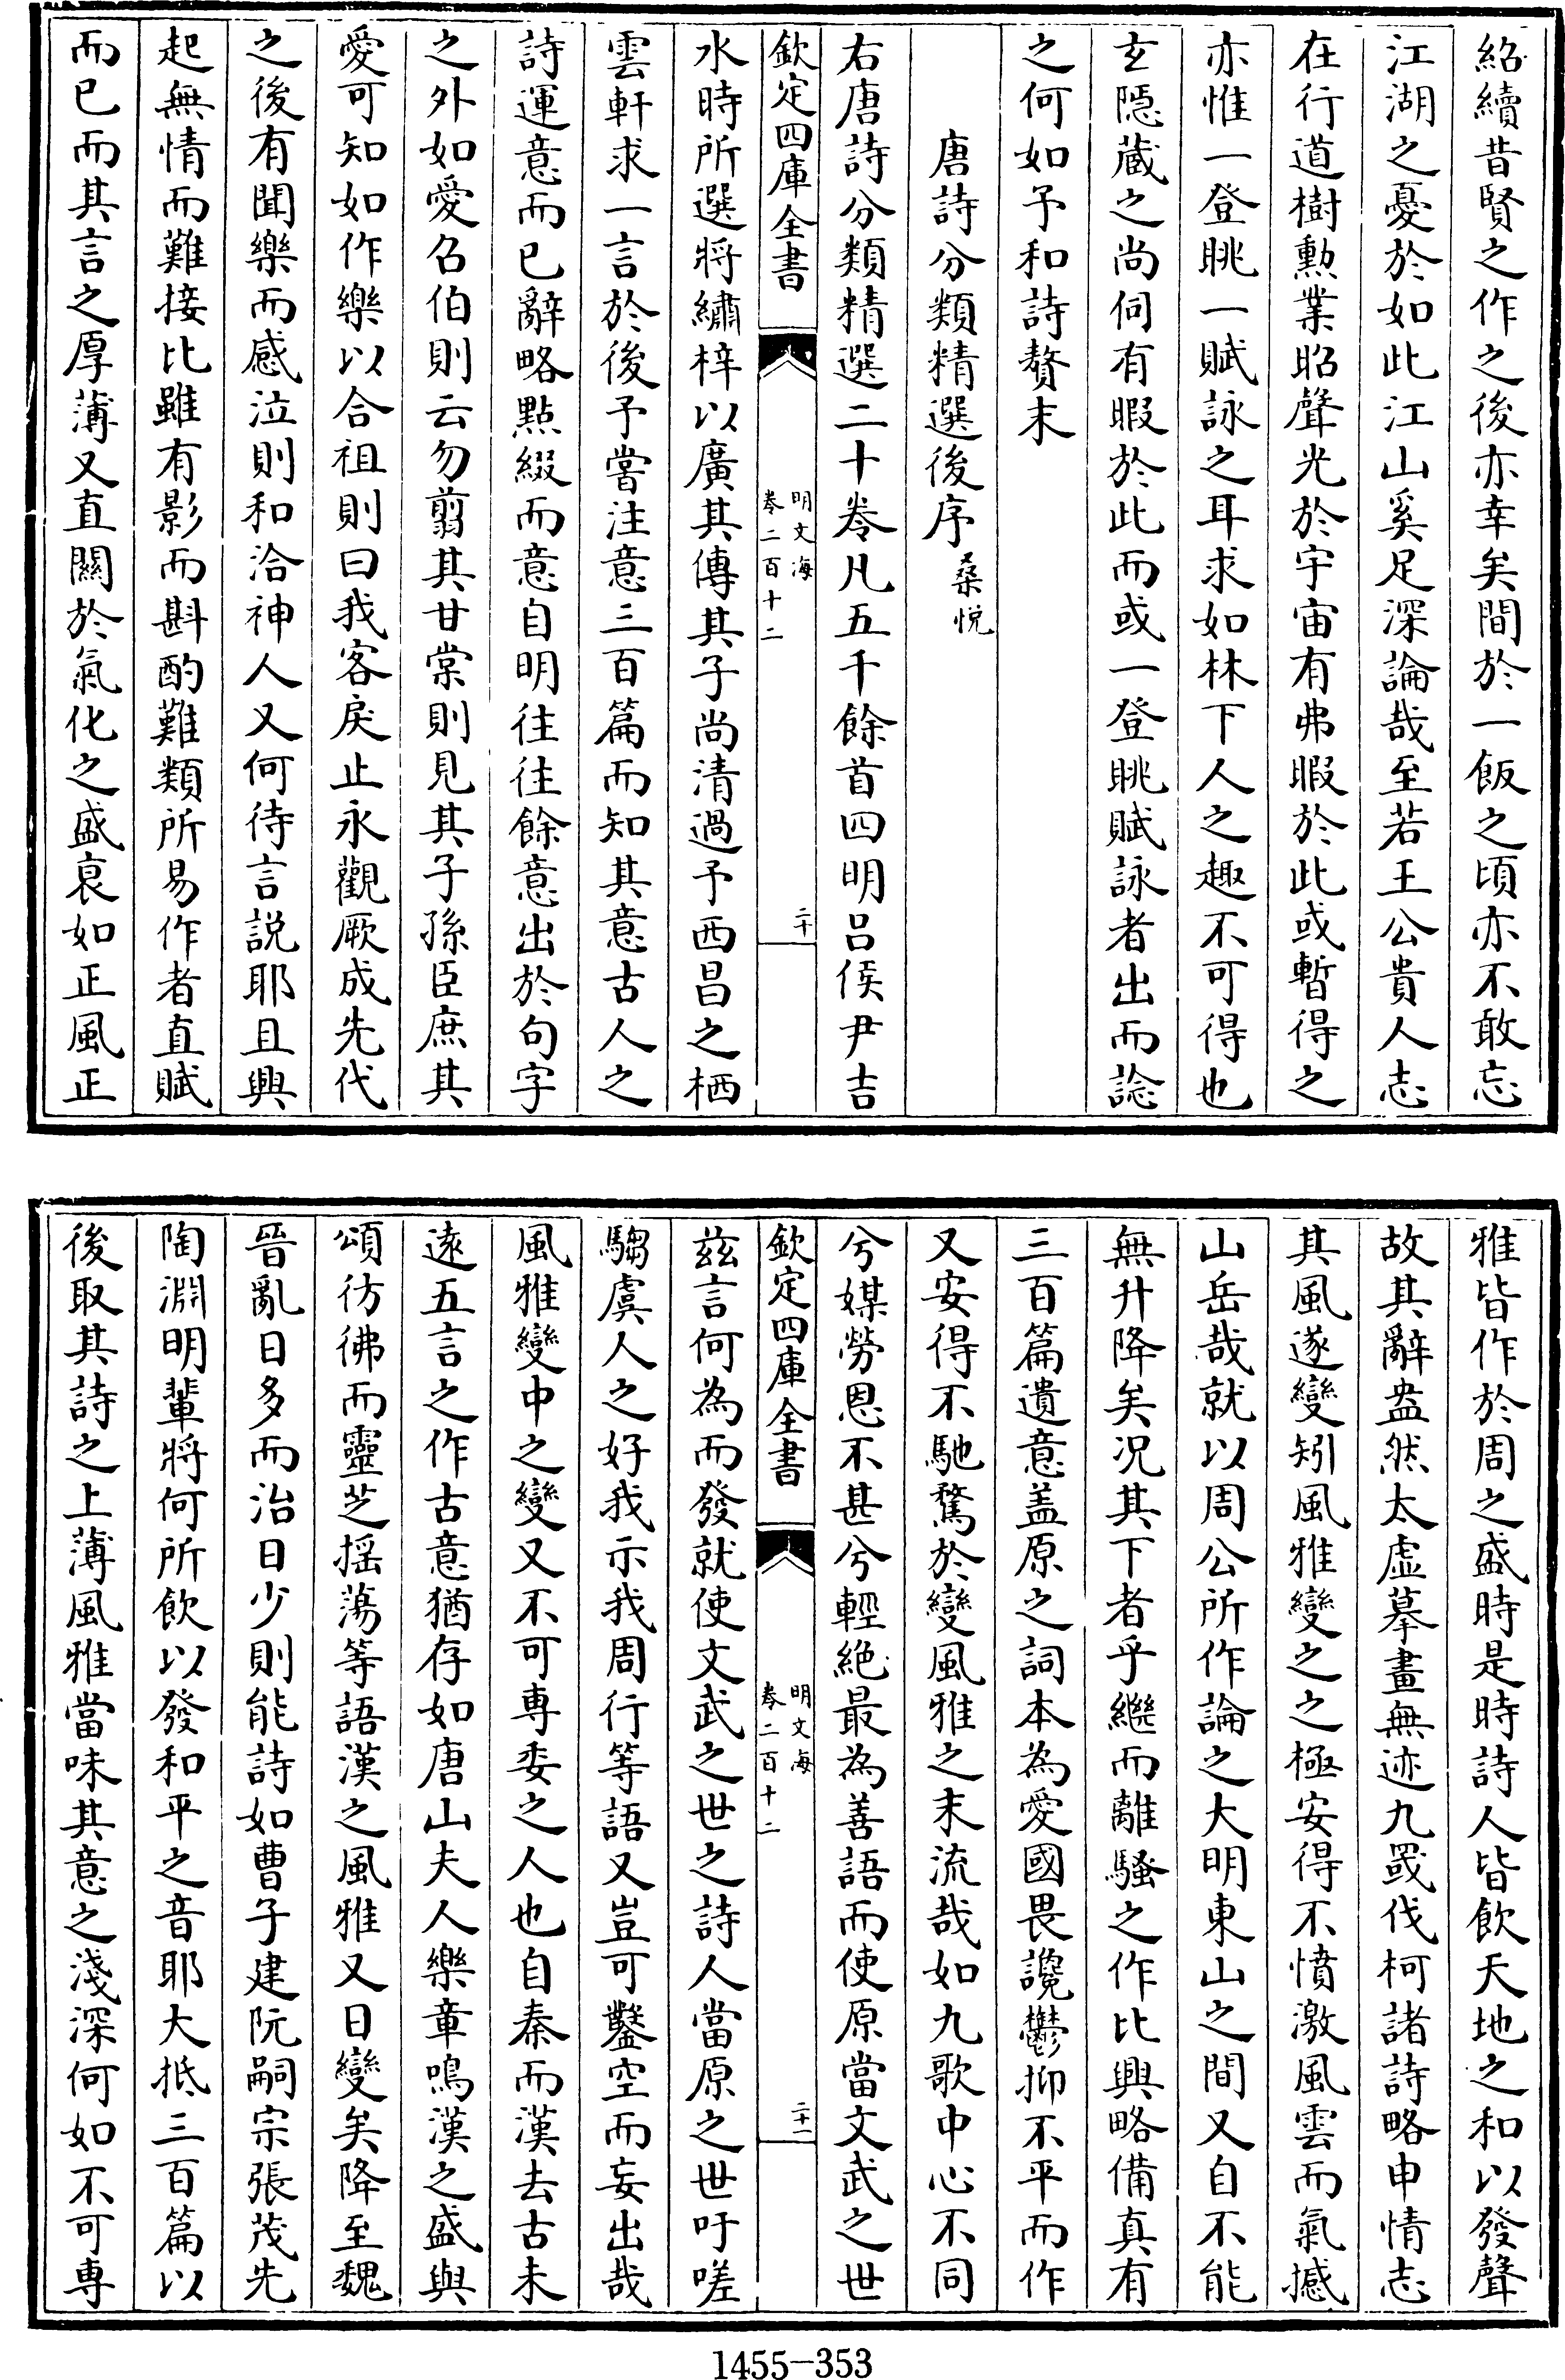 紹續昔賢之作之後亦幸矣間於一飯之頃亦不敢忘
江湖之憂於如此江山奚足深論哉至若王公貴人志
在行道樹勲業昭聲光於宇宙有弗暇於此或暫得之
亦惟一登眺一賦詠之耳求如林下人之趣不可得也
𤣥隠蔵之尚何有暇於此而或一登眺賦詠者出而諗
之何如予和詩贅末
唐詩分類精選後序 桑悦
右唐詩分類精選二十卷凡五千餘首四明吕侯尹吉
欽定四庫全書 明文海 卷二百十二 二十
水時所選將繡梓以廣其傳其子尚清過予西昌之栖
雲軒求一言於後予嘗注意三百篇而知其意古人之
詩運意而已辭略㸃綴而意自明往往餘意出於句字
之外如愛召伯則云勿翦其甘棠則見其子孫臣庶其
愛可知如作樂以合祖則曰我客戾止永觀厥成先代
之後有聞樂而感泣則和洽神人又何待言説耶且興
起無情而難接比雖有影而斟酌難類所易作者直賦
而已而其言之厚薄又直闗於氣化之盛衰如正風正
雅皆作於周之盛時是時詩人皆飲天地之和以發聲
故其辭盎然太虚摹畫無迹九罭伐柯諸詩略申情志
其風遂變矧風雅變之之極安得不憤激風雲而氣撼
山岳哉就以周公所作論之大明東山之間又自不能
無升降矣况其下者乎繼而離騷之作比興略備真有
三百篇遺意盖原之詞本為愛國畏讒鬱抑不平而作
又安得不馳騖於變風雅之末流哉如九歌中心不同
兮媒勞恩不甚兮輕絶最為善語而使原當文武之世
欽定四庫全書 明文海 卷二百十二 二十一
兹言何為而發就使文武之世之詩人當原之世吁嗟
騶虞人之好我示我周行等語又豈可鑿空而妄出哉
風雅變中之變又不可専委之人也自秦而漢去古未
逺五言之作古意猶存如唐山夫人樂章鳴漢之盛與
頌彷彿而靈芝揺蕩等語漢之風雅又日變矣降至魏
晉亂日多而治日少則能詩如曹子建阮嗣宗張茂先
陶淵明輩將何所飲以發和平之音耶大抵三百篇以
後取其詩之上薄風雅當味其意之淺深何如不可専
1455-353